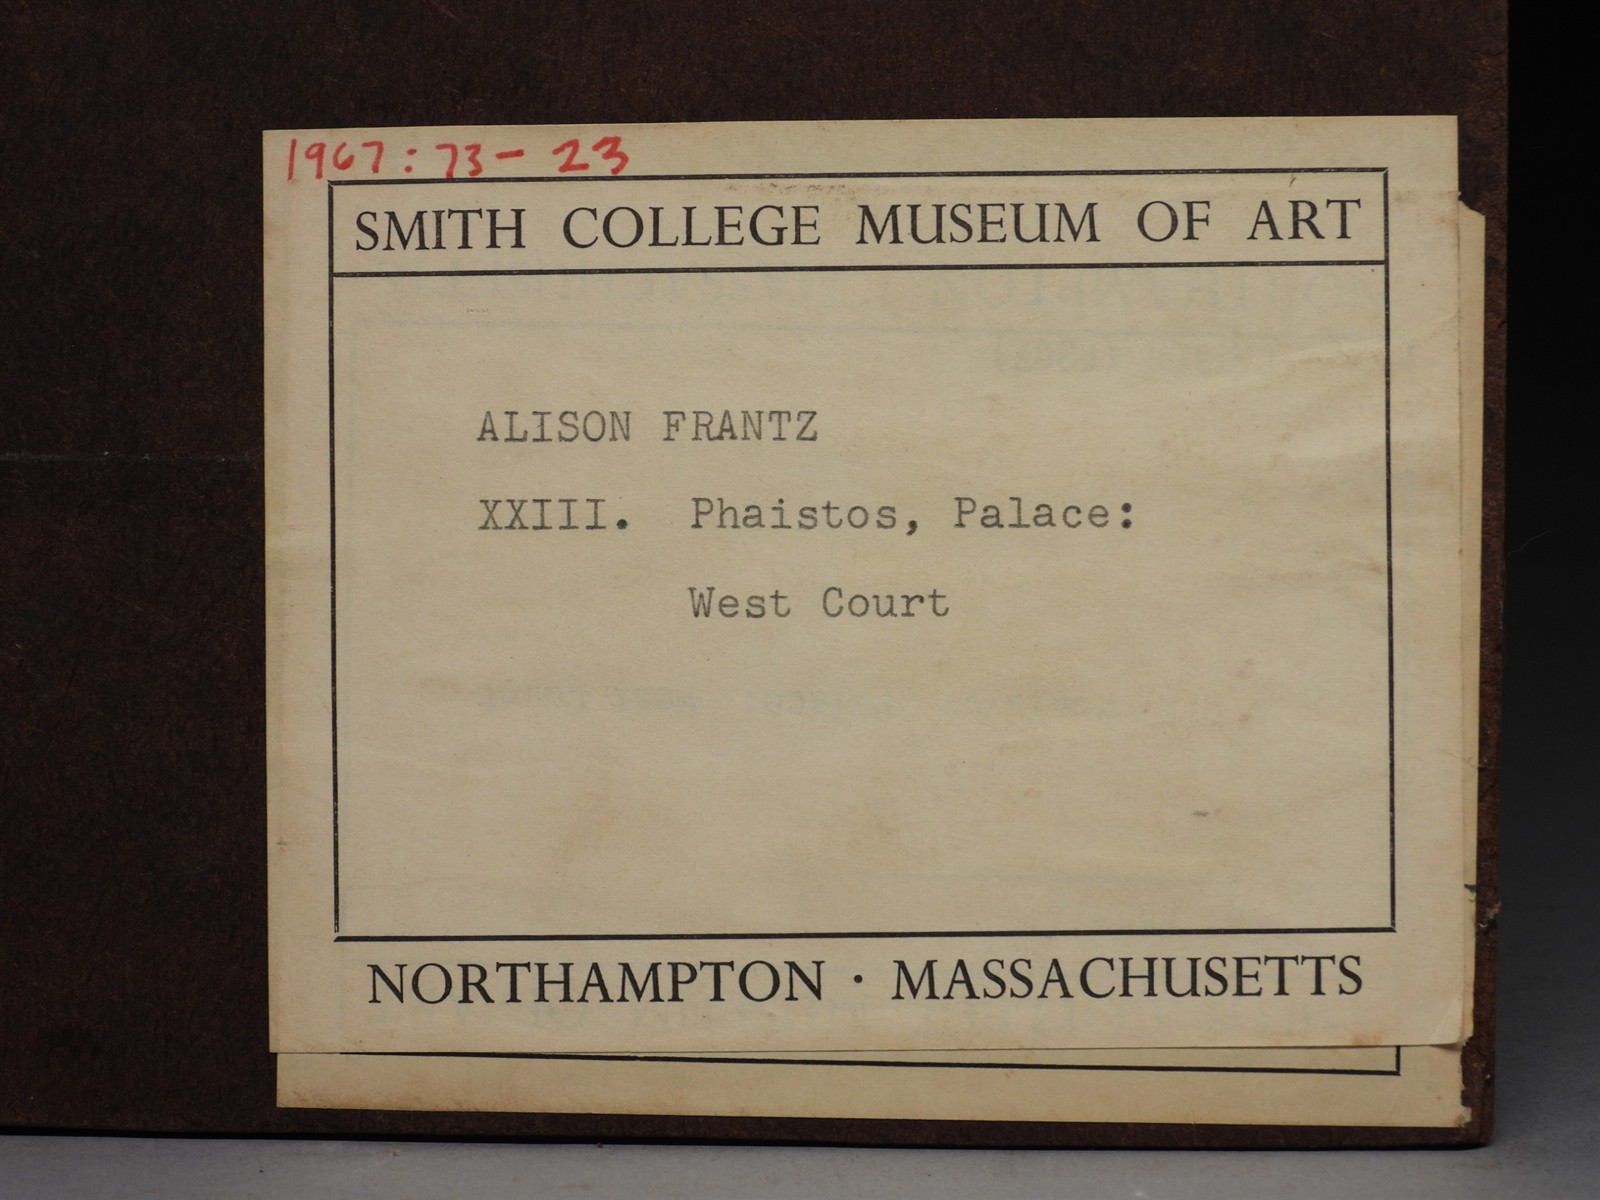 1967:73-23
SMITH COLLEGE MUSEUM OF ART
ALISON FRANTZ
XXIII. Phaistos, Palace:
West Court
NORTHAMPTON · MASSACHUSETTS